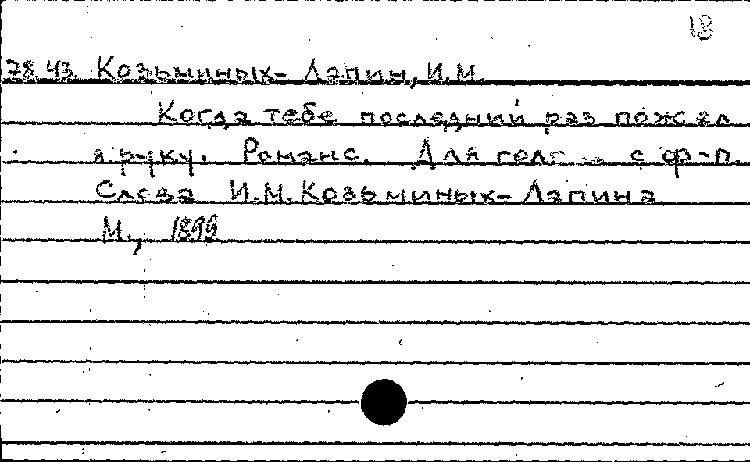 18
78.43 Козьминых-Лапин, И.М.
Когда тебе последний раз пожал
я руку. Романс. Для голоса с ф-п.
Слова И.М. Козьминых-Лапина
М., 1899